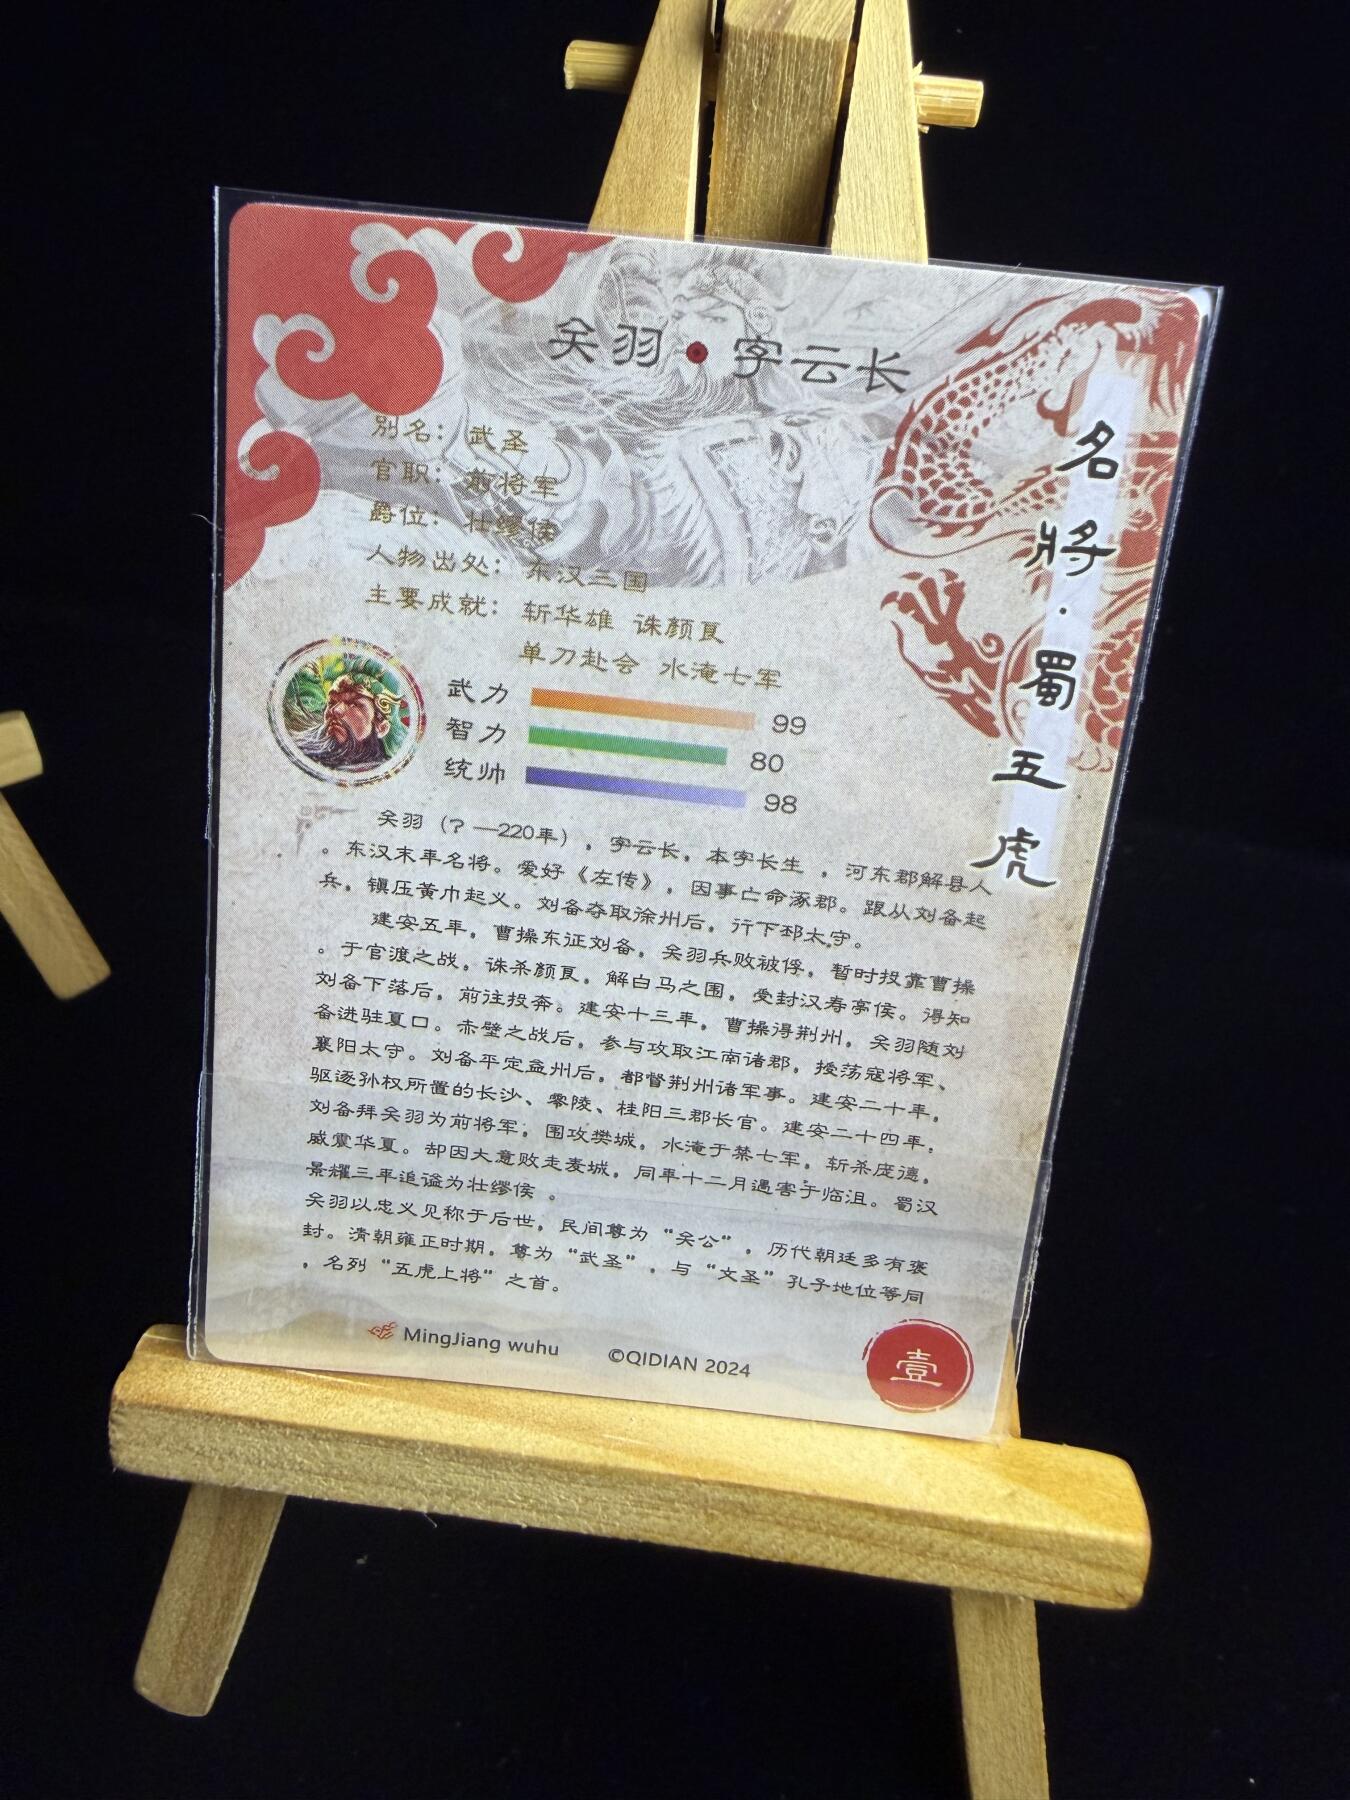 关羽●字云长
别名：武圣
官职：前将军
爵位：壮缪侯
人物出处：东汉三国
主要成就：斩华雄 诛颜良
单刀赴会 水淹七军
武力 99
智力 80
统帅 98
关羽（？—220年），字云长，本字长生，河东郡解县人
。东汉末年名将。爱好《左传》，因事亡命涿郡。跟从刘备起
兵，镇压黄巾起义。刘备夺取徐州后，行下邳太守。
建安五年，曹操东征刘备，关羽兵败被俘，暂时投靠曹操
。于官渡之战，诛杀颜良，解白马之围，受封汉寿亭侯。得知
刘备下落后，前往投奔。建安十三年，曹操得荆州，关羽随刘
备进驻夏口。赤壁之战后，参与攻取江南诸郡，授荡寇将军、
襄阳太守。刘备平定益州后，都督荆州诸军事。建安二十年，
驱逐孙权所置的长沙、零陵、桂阳三郡长官。建安二十四年，
刘备拜关羽为前将军，围攻樊城，水淹于禁七军，斩杀庞德，
威震华夏。却因大意败走麦城，同年十二月遇害于临沮。蜀汉
景耀三年追谥为壮缪侯。
关羽以忠义见称于后世，民间尊为“关公”，历代朝廷多有褒
封。清朝雍正时期，尊为“武圣”，与“文圣”孔子地位等同
，名列“五虎上将”之首。
名將·蜀五虎
MingJiang wuhu ©QIDIAN 2024
壹